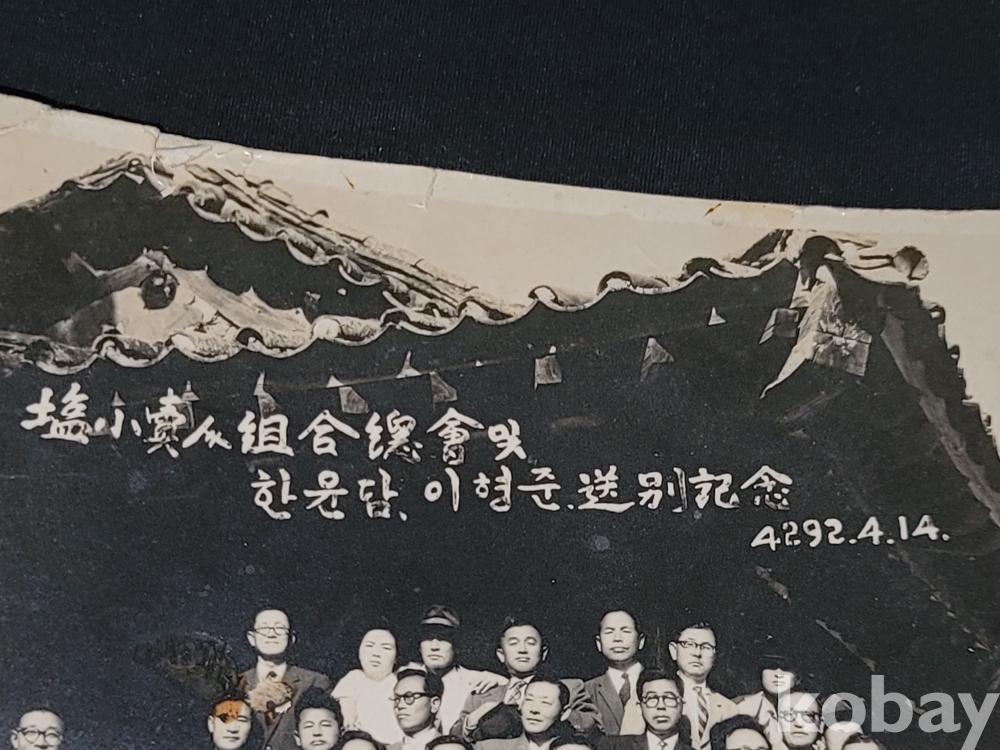 塩小賣人組合總會및
한윤답、이형준、送別記念
4292.4.14.
kobay